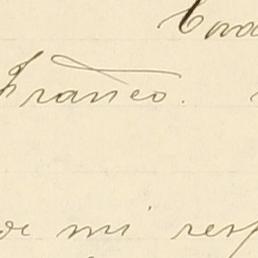 Cora
Franco.
de mi resp